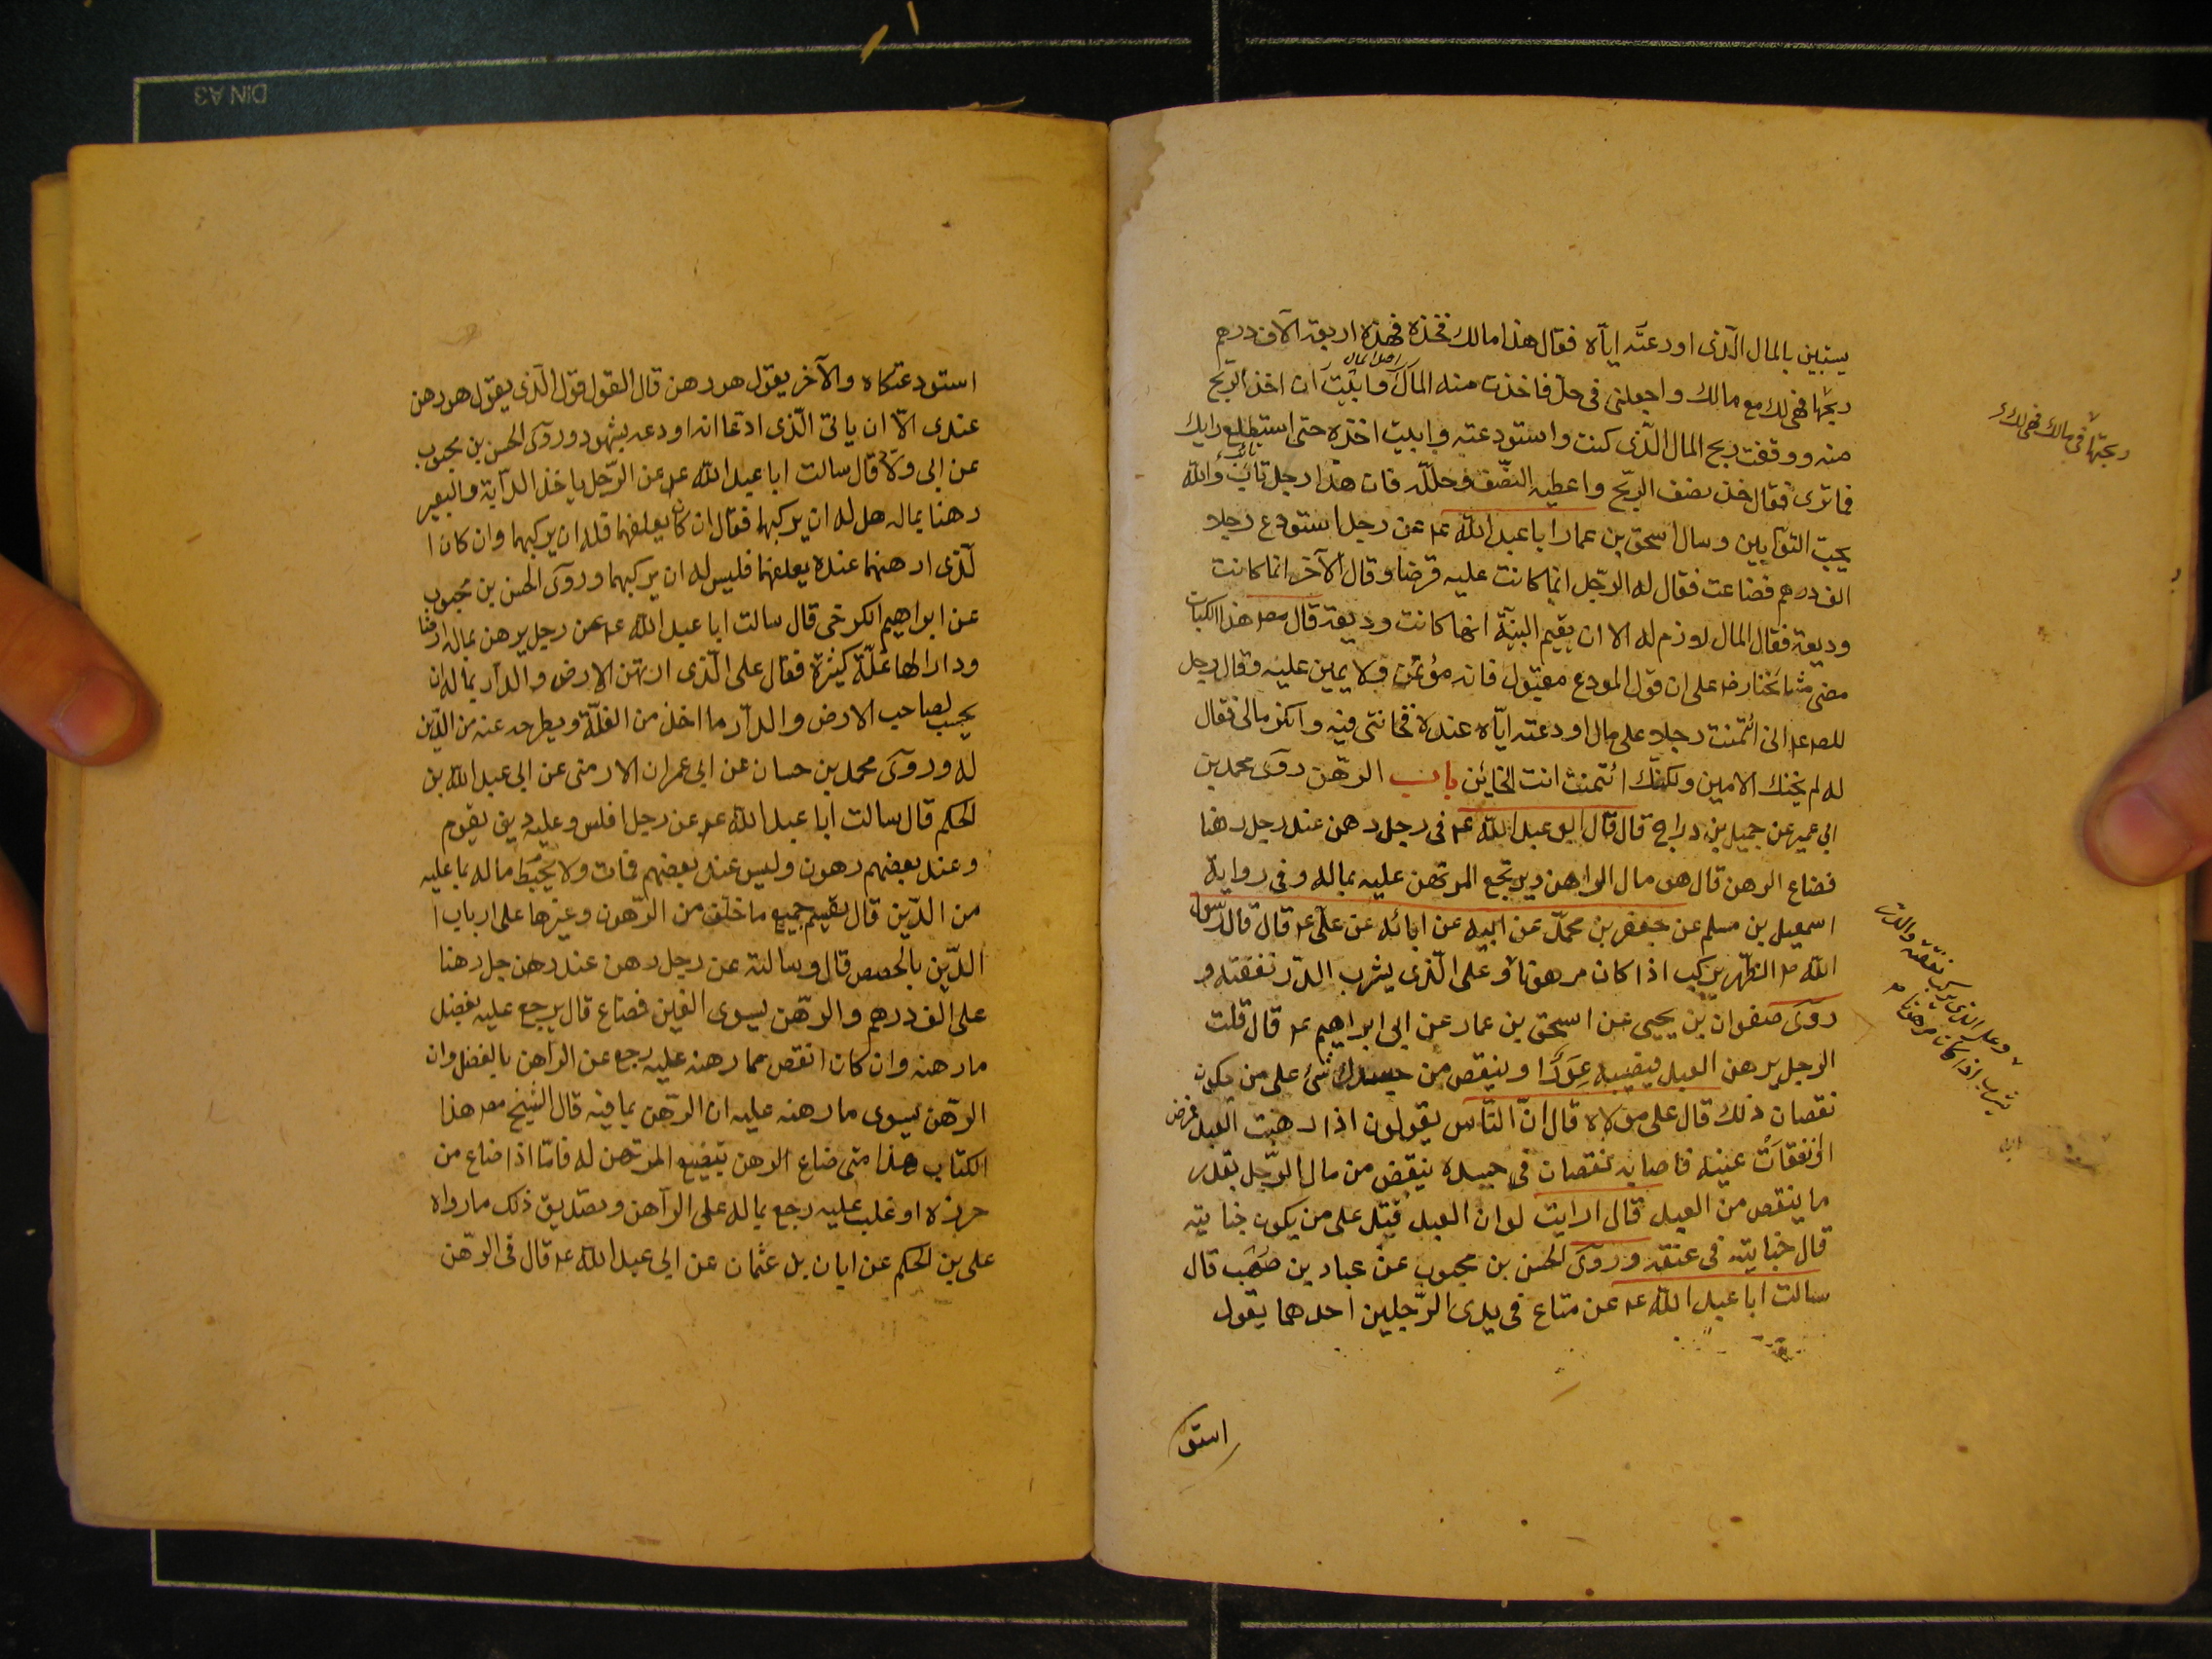 يستبين بالمال الذى اودعته اياه فقال هذا مالك فخذه فهذه اربعة الآف درهم
ربحتها فهى لك مع مالك واجعلنى فى حل فاخذت منه المال وابيت ان اخذ الربح
اصل المال
منه ووقفت ربح المال الذى كنت واستودعته وابيت اخذه حتى استطلع رايك
فما ترى فقال خذ نصف الربح واعطيه النصف وحلله فان هذا رجل تائب والله
يحب التوابين وسال اسحق بن عمار ابا عبد الله عم عن رجل استودع رجلا
الف درهم فضاعت فقال له الرجل انما كانت عليه قرضا وقال الآخر انما كانت
وديعة فقال المال لازم له الا ان يقيم البينة انها كانت وديعة قال مصه هذا الكتاب
مضى مشايخنا رضه على ان قول المودع مقبول فانه مؤتمن ولا يمين عليه وقال رجل
للصه عم انى ائتمنت رجلا على مال اودعته اياه عنده فخانتى فيه وانكر مالى فقال
له لم يخنك الامين ولكنك ائتمنت انت الخائن باب الرهن روى محمد بن
ابى عمير عن جميل بن دراج قال قال ابو عبد الله عم فى رجل رهن عند رجل رهنا
فضاع الرهن قال هو مال الراهن ويرتجع المرتهن عليه بماله وفى رواية
اسمعيل بن مسلم عن جعفر بن محمد عن ابيه عن ابائه عن على عم قال قال رسول
الله ص الظهر يركب اذا كان مرهونا وعلى الذى يشرب الدر نفقته و
روى صفوان بن يحيى عن اسحق بن عمار عن ابى ابراهيم عم قال قلت
الرجل يرهن العبد فيصيبه عورا او ينقص من جسده شئ على من يكون
نقصان ذلك قال على مولاه قال ان الناس يقولون اذا رهنت العبد فمرض
او نفقات عينيه فاصابه نقصان فى جسده ينقص من مال الرجل بقدر
ما ينقص من العبد قال ارايت لو ان العبد قتل على من يكون جنايته
قال جنايته فى عنقه وروى الحسن بن محبوب عن عباد بن صهيب قال
سالت ابا عبد الله عم عن متاع فى يدى الرجلين احدهما يقول
استو
ربحتها فى مالك فهى لك
وعلى الذى يركب نفقته والدر
يشرب اذا كان مرهونا
استودعتكاه والآخر يقول هو رهن قال القول قول الذى يقول هو رهن
عندى الا ان ياتى الذى ادعا انه اودعه بشهود وروى الحسن بن محبوب
عن ابى ولاد قال سالت ابا عبد الله عم عن الرجل ياخذ الدابة والبعير
رهنا بماله هل له ان يركبهما فقال ان كان يعلفهما فله ان يركبهما وان كان ا
لذى ارهنهما عنده يعلفهما فليس له ان يركبهما وروى الحسن بن محبوب
عن ابراهيم الكرخى قال سالت ابا عبد الله عم عن رجل يرهن بماله ارضا
ودارا لها غلة كثيرة فقال على الذى ارتهن الارض والدار بماله ان
يحسب لصاحب الارض والدار ما اخذ من الغلة ويطرحه عنه من الدين
له وروى محمد بن حسان عن ابى عمران الارمنى عن ابى عبد الله بن
الحكم قال سالت ابا عبد الله عم عن رجل افلس وعليه دين يقوم
وعند بعضهم رهون وليس عند بعضهم فمات ولا يحيط ماله بما عليه
من الدين قال يقسم جميع ما خلف من الرهون وغيرها على ارباب ا
الدين بالحصص قال وسالته عن رجل رهن عند رهن جل رهنا
على الف درهم والرهن يسوى الفين فضاع قال يرجع عليه بفضل
ما رهنه وان كان انقص مما رهنه عليه رجع عن الراهن بالفضل وان
الرهن يسوى ما رهنه عليه ان الرهن بما فيه قال الشيخ مصه هذا
الكتاب هذا متى ضاع الرهن بتضييع المرتهن له فاما اذا ضاع من
حرزه او غلب عليه رجع بماله على الراهن وتصديق ذلك ما رواه
على بن الحكم عن ابان بن عثمان عن ابى عبد الله عم قال فى الرهن
DIN A3